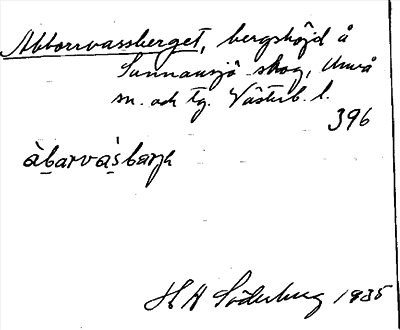 Abborrvassberget, bergshöjd å
Sunnansjö skog, Umeå
sn. och tg. Västerb. l.
396
àbarvàsbarjə
H A Söderberg 1935